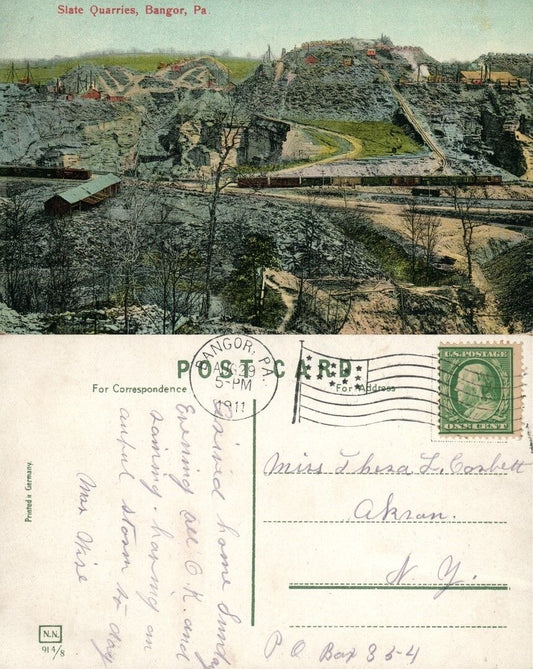 Slate Quarries, Bangor, Pa
POST CARD
For Correspondence
For Address
BANGOR, PA.
AUG 29
5-PM
1911
U.S. POSTAGE
ONE CENT
Arrived home Sunday
Evening all O.K. and
raining. having an
awful storm to day
Mrs Wise
Miss Thesa L. Corbett
Akron.
N. Y.
P. O. Box 354
Printed in Germany.
N.N.
914/8